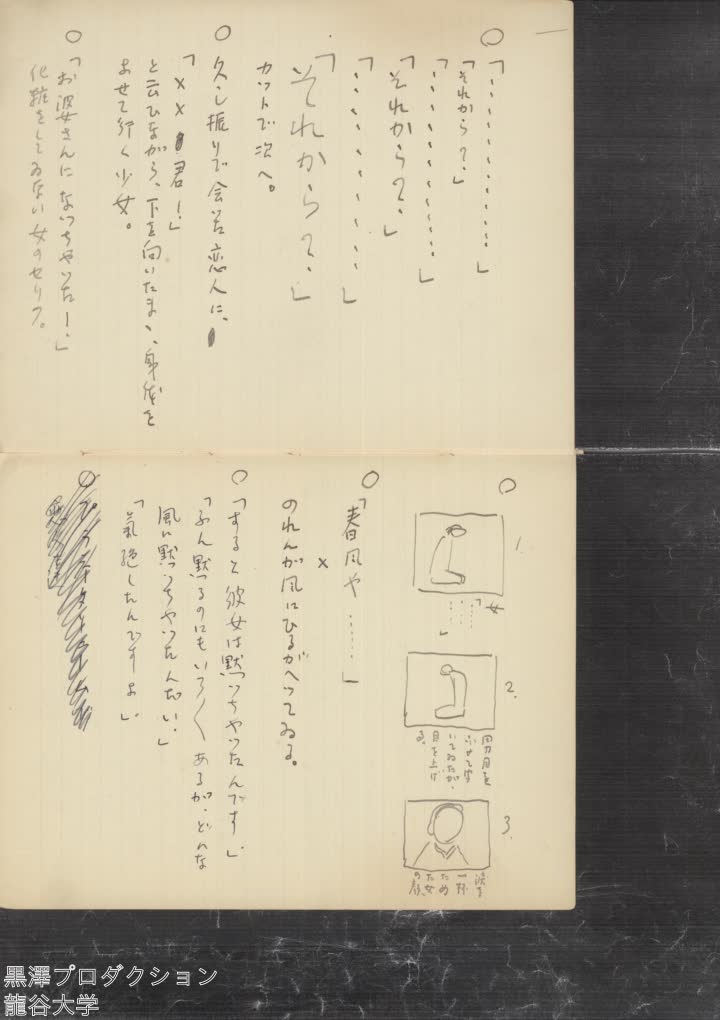 ○「・・・・・・・・・・・・・」
「それから?」
「・・・・・・・・・・・・・」
「それから?」
「・・・・・・・・・・・・・」
「それから?」
カットで次へ。
○久し振りで会ふ恋人に、
「××君!」
と云ひながら、下を向いたまゝ、身体を
よせて行く少女。
○「お婆さんになつちやつたー!」
化粧をしてゐない女のセリフ。
○
1.
女
「・・・・・
・・・・・」
2.
男目を
ふせて
いてゐたが、
目を上げ
る。
3.
涙を
一杯
ため
た女
の顔。
○「春風や・・・・・・」
×
のれんが風にひるがへつてゐる。
○「すると彼女は黙つちやつたんです」
「ふん黙るのにもいろ〱あるが、どんな
風に黙つちやつたんだい。」
「氣絶したんですよ」
○
黒澤プロダクション
龍谷大学